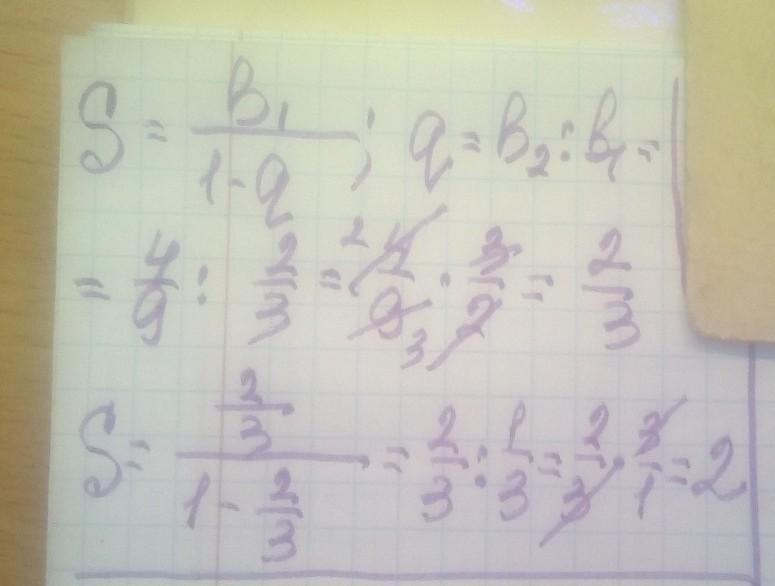 S = b₁/(1-q); q = b₂ : b₁ =
= 4/9 : 2/3 = 4/9 · 3/2 = 2/3
S = (2/3)/(1 - 2/3) = 2/3 : 1/3 = 2/3 · 3/1 = 2